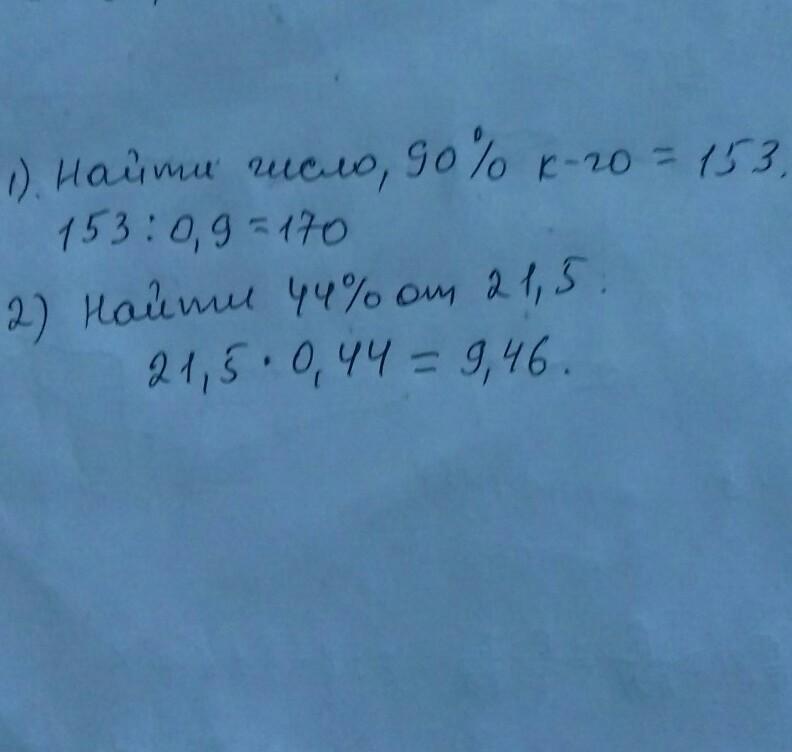 1). Найти число, 90% к-го = 153.
153 : 0,9 = 170
2) Найти 44% от 21,5.
21,5 · 0,44 = 9,46.